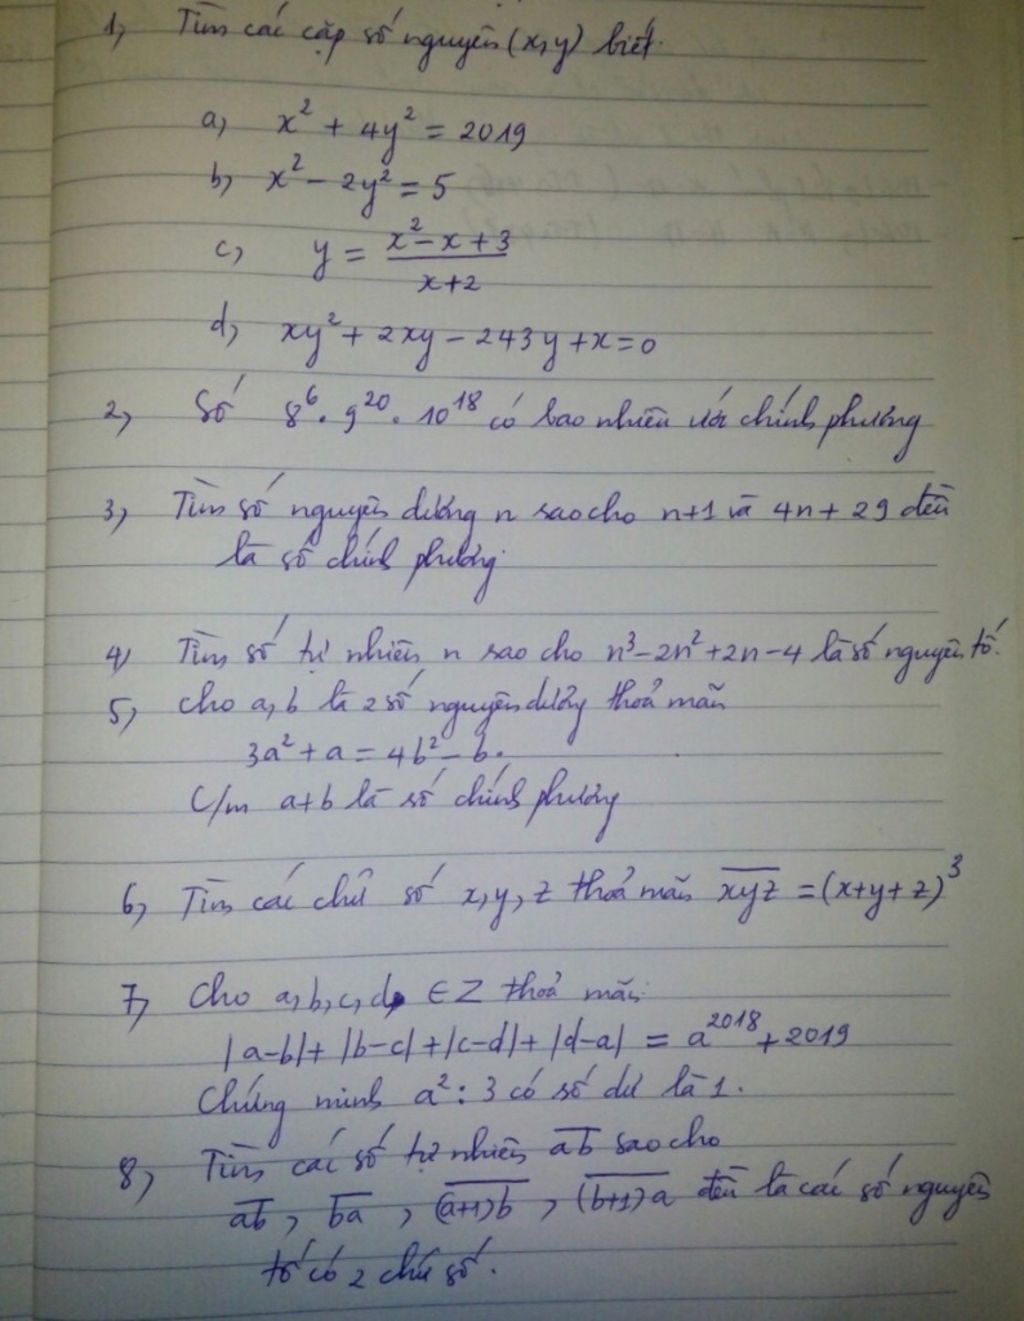 1, Tìm các cặp số nguyên (x, y) biết.
a, x² + 4y² = 2019
b, x² - 2y² = 5
c, y = \frac{x² - x + 3}{x + 2}
d, xy² + 2xy - 243y + x = 0
2, Số 8⁶ . 9²⁰ . 10¹⁸ có bao nhiên ước chính phương
3, Tìm số nguyên dương n sao cho n+1 và 4n + 29 đều
là số chính phương.
4, Tìm số tự nhiên n sao cho n³ - 2n² + 2n - 4 là số nguyên tố.
5, Cho a, b là 2 số nguyên dương thoả mãn
3a² + a = 4b² - b.
C/m a+b là số chính phương
6, Tìm các chữ số x, y, z thoả mãn \overline{xyz} = (x+y+z)³
7, Cho a, b, c, d ∈ Z thoả mãn:
|a-b| + |b-c| + |c-d| + |d-a| = a²⁰¹⁸ + 2019
Chứng minh a² : 3 có số dư là 1.
8, Tìm các số tự nhiên \overline{ab} sao cho
\overline{ab}, \overline{ba}, \overline{(a+1)b}, \overline{(b+1)a} đều là các số nguyên
tố có 2 chữ số.